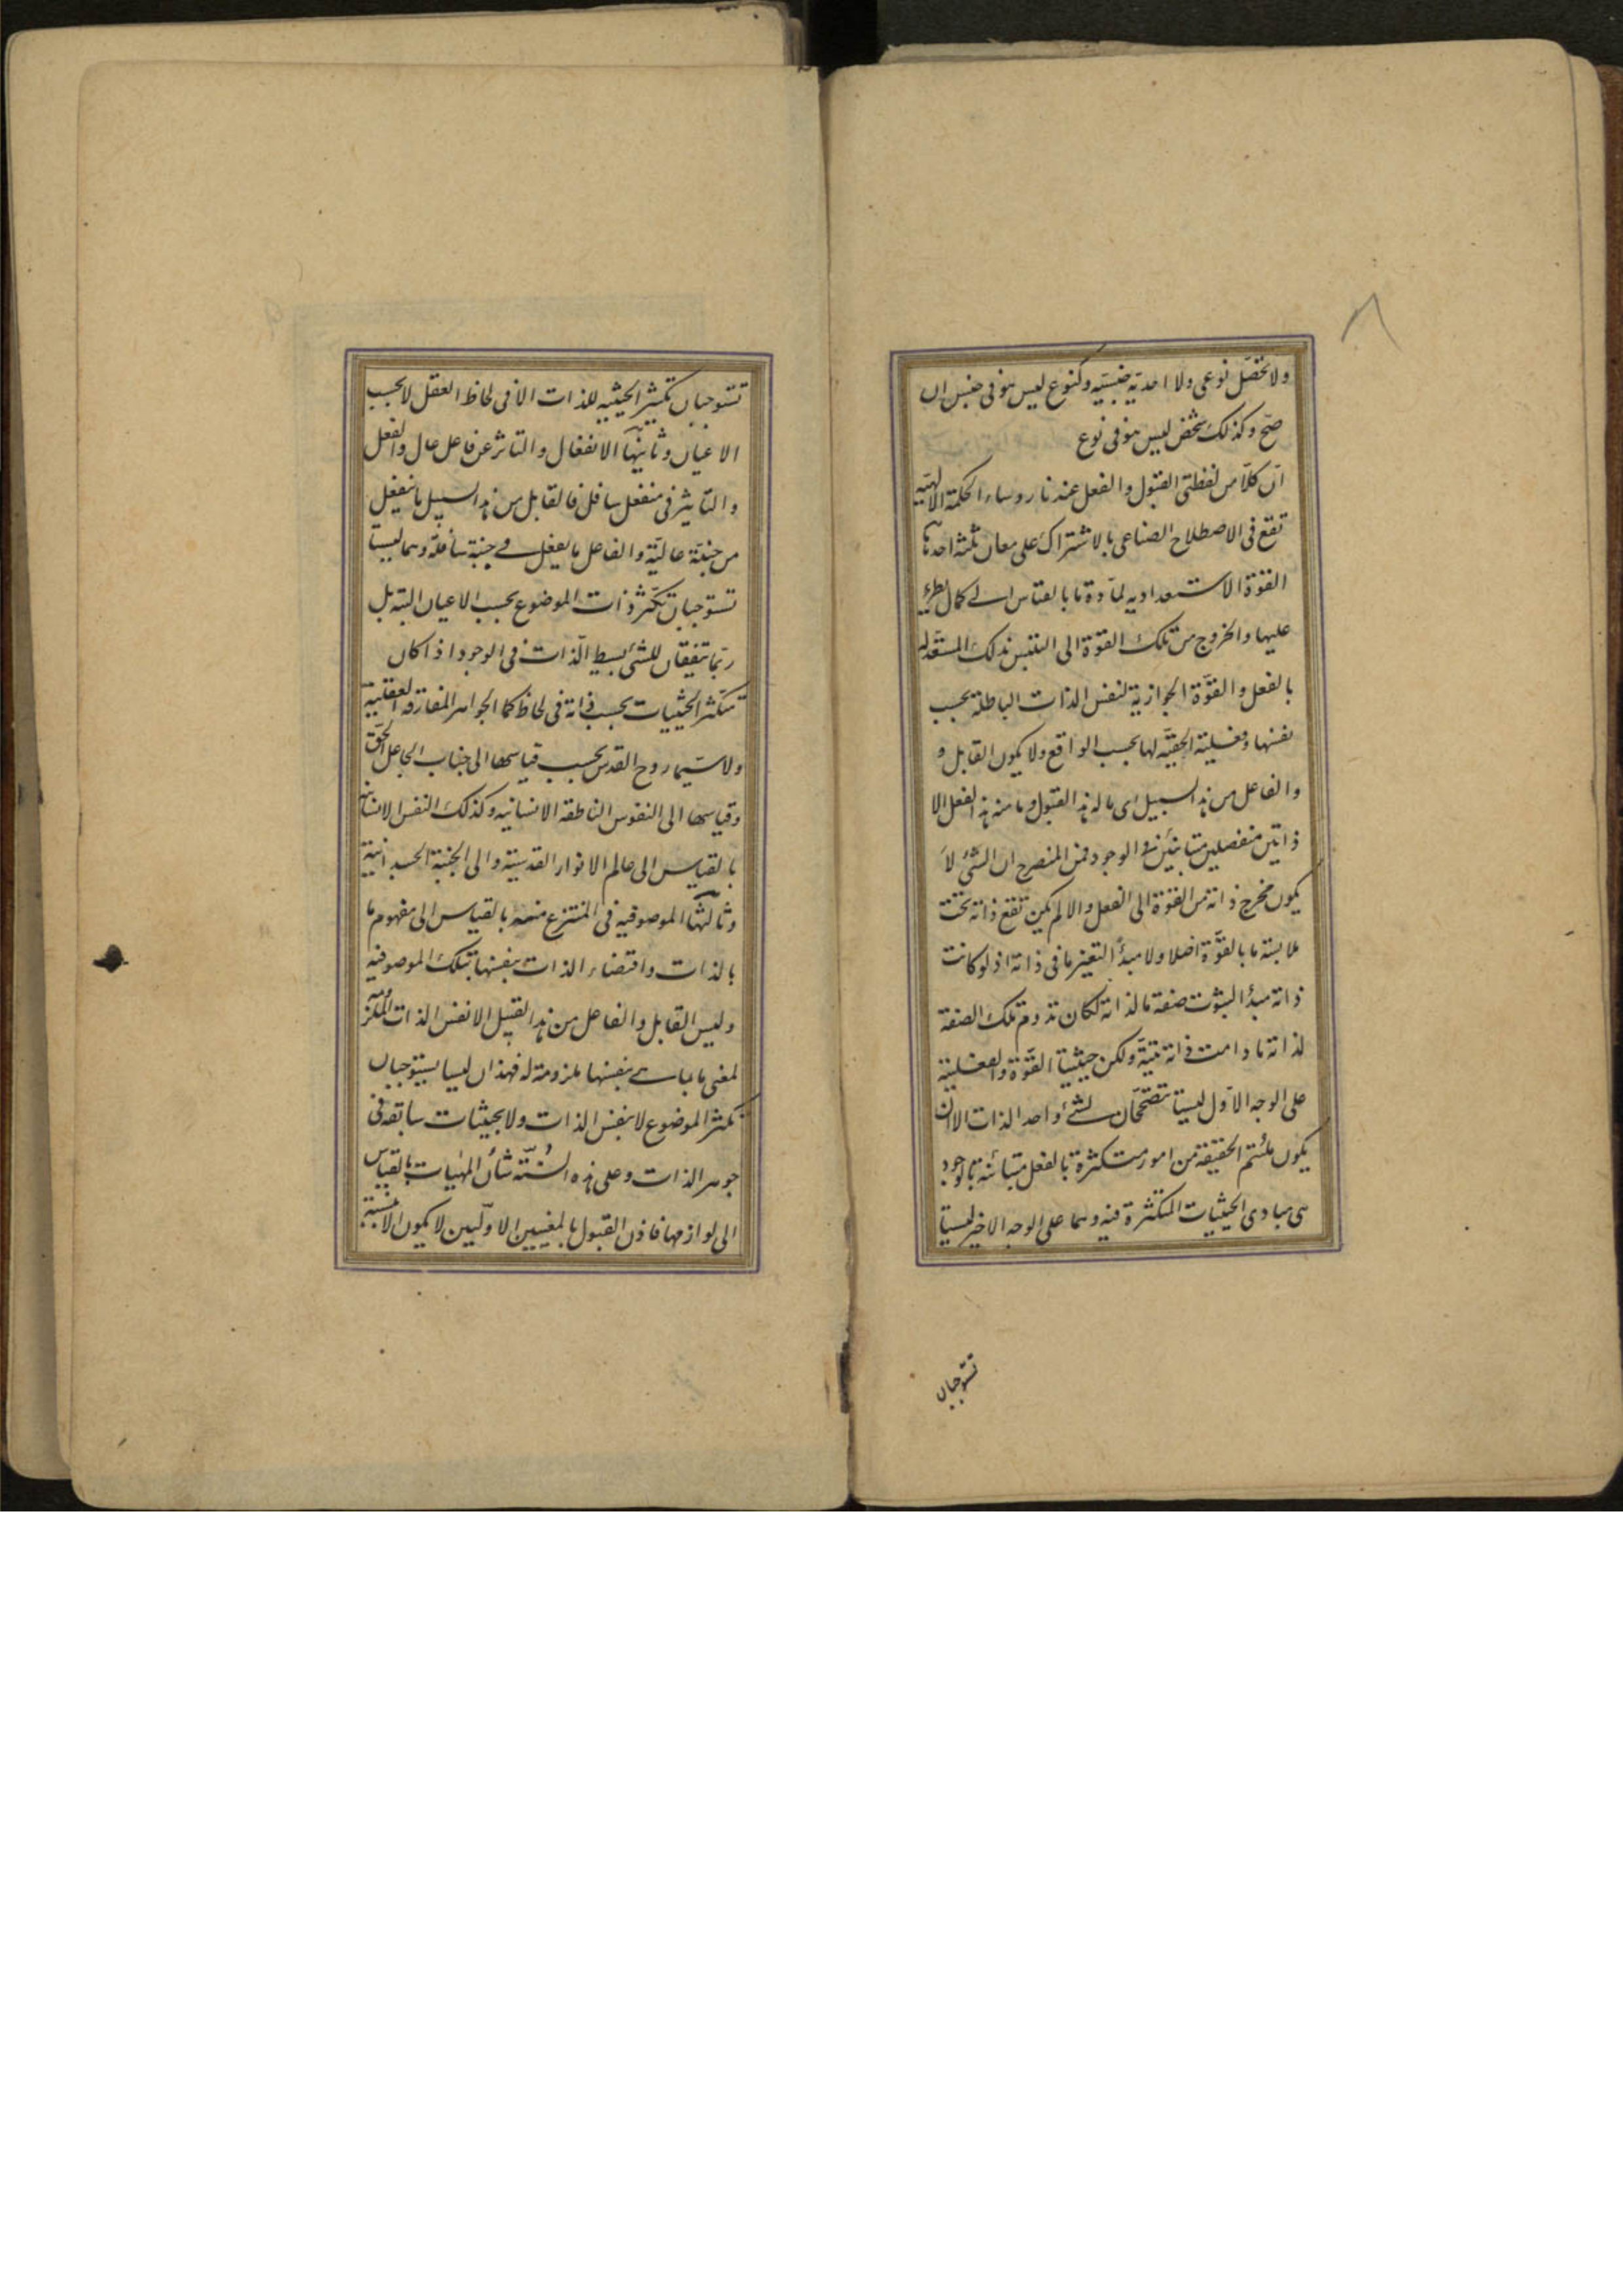 ولا تحصّل نوعى ولا احدية جنسيّه وكنوع ليس هو فى جنس ان
صحّ وكذلك شخص ليس هو فى نوع
انّ كلّا من لفظتى القبول والفعل عندنا روساء الحكمة الالهيّه
تقع فى الاصطلاح الصناعى بالاشتراك على معان ثلثة احدها
القوة الاستعداديه لمادّة ما بالقياس الى كمال يطرء
عليها والخروج من تلك القوّة الى التلبس بذلك المستعدّ له
بالفعل والقوّة الجوازية لنفس الذات الباطلة بحسب
نفسها وفعلية الحقيّه لها بحسب الواقع ولا يكون القابل و
والفاعل من هذا السبيل اى ما له هذا القبول وما منه هذا الفعل الا
ذاتين منفصلين متباينين فى الوجود فمن المنصرح ان الشئ لا
يكون مخرج ذاته من القوة الى الفعل والا لم يكن تقع ذاته تحت
ملابسة ما بالقوّة اصلا ولا مبدأ التغير ما فى ذاته اذ لو كانت
ذاته مبدأ لثبوت صفة ما لذاته لكان تدوم تلك الصفة
لذاته ما دامت ذاته بتيّة ولكن حيثيتا القوّة والفعلية
على الوجه الاوّل ليستا تصحّحان لشئ واحد الذات الا ان
يكون ملتئم الحقيقة من امور متكثرة بالفعل متباينة بالوجود
هى مبادى الحيثيات المتكثرة فيه وهما على الوجه الاخير ليستا
تستوجبان
تستوجبان تكثير الحيثيه للذات الا فى لحاظ العقل لا بحسب
الاعيان وثانيها الانفعال والتاثر عن فاعل عال والفعل
والتاثير فى منفعل سافل فالقابل من هذا السبيل ما ينفعل
من جنبة عالية والفاعل ما يفعل فى جنبة سافلة وهما ليستا
تستوجبان تكثّر ذات الموضوع بحسب الاعيان البتة بل
ربّما تتفقان للشئ بسيط الذات فى الوجود اذا كان
تتكثر الحيثيات بحسب ذاته فى لحاظ كما الجواهر المفارقه العقلية
ولا سيّما روح القدس بحسب قياسها الى جناب الجاعل الحق
وقياسها الى النفوس الناطقه الانسانيه وكذلك النفس الانسانية
بالقياس الى عالم الانوار القدسية والى الجنبة الجسدانية
وثالثها الموصوفيه فى المنتزع منه بالقياس الى مفهوم ما
بالذات واقتضاء الذات بنفسها بتلك الموصوفيه
وليس القابل والفاعل من هذا القبيل الا نفس الذات الملزومة
لمعنى ما بما هى بنفسها ملزومة له فهذان ليسا يستوجبان
تكثر الموضوع لا بنفس الذات ولا بحيثيات سابقه فى
جوهر الذات وعلى هذه السُنّة شأن المهيات بالقياس
الى لوازمها فاذن القبول بالمعنيين الاولين لا يكون الا نسبة